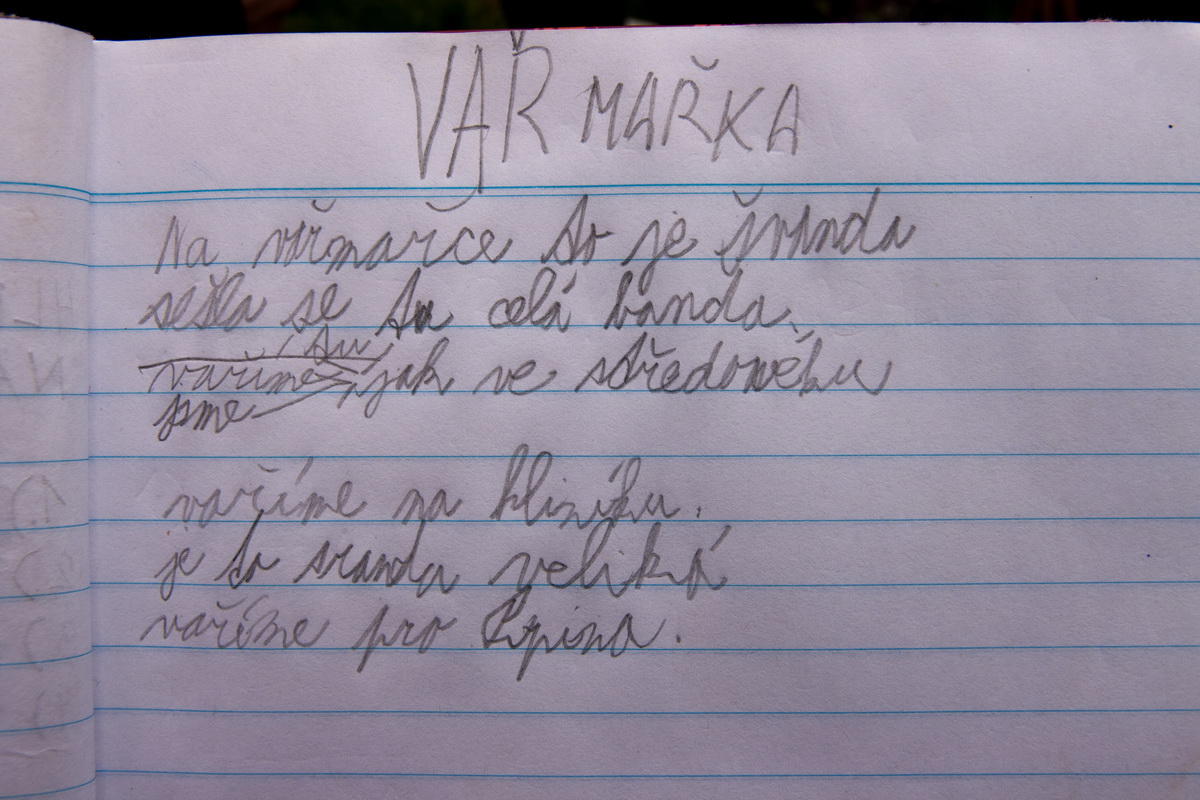 VAŘ MAŘKA
Na vařmařce to je švanda
sešla se tu celá banda.
tu
vaříme jak ve středověku
jsme
vaříme na kliníku.
je to sranda veliká
vaříme pro